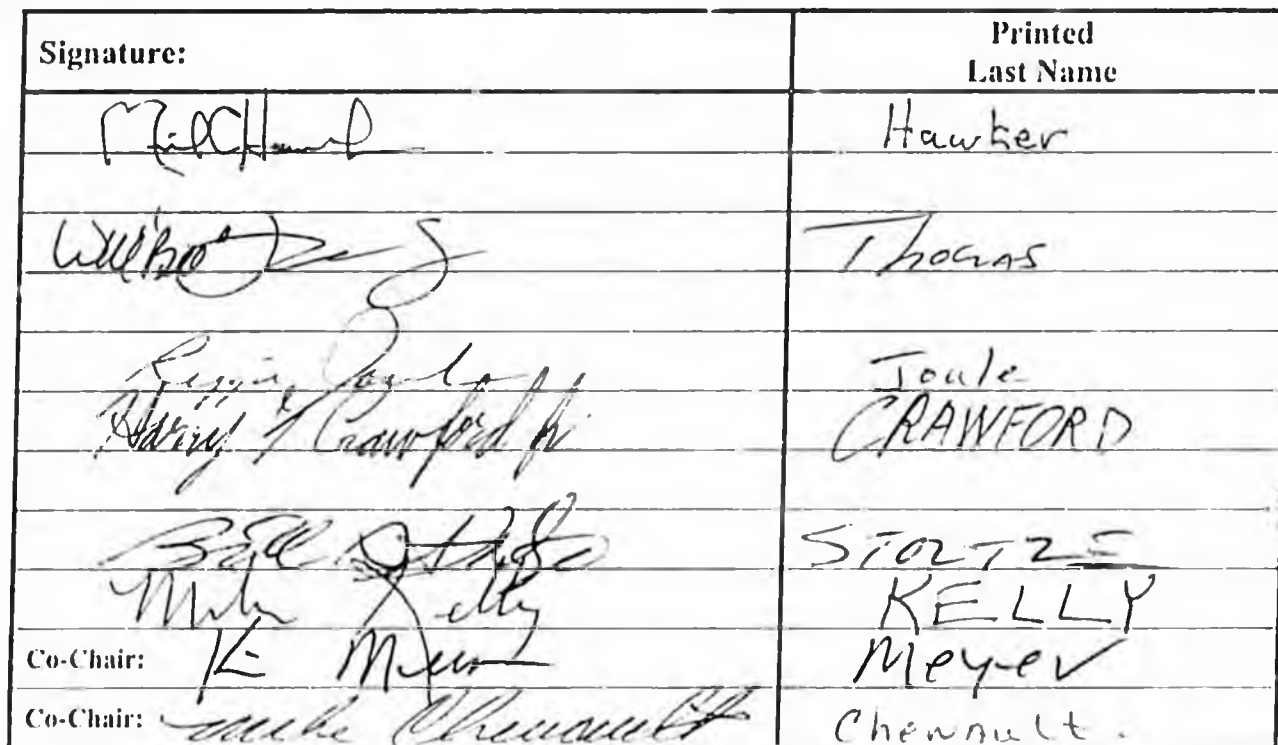 Signature: Printed
Last Name
Hawker
Thomas
Reggie Joule Joule
Harry T Crawford Jr CRAWFORD
Bill Stoltze STOLTZE
Mike Kelly KELLY
Co-Chair: K Meyer Meyer
Co-Chair: Mike Chenault Chenault.